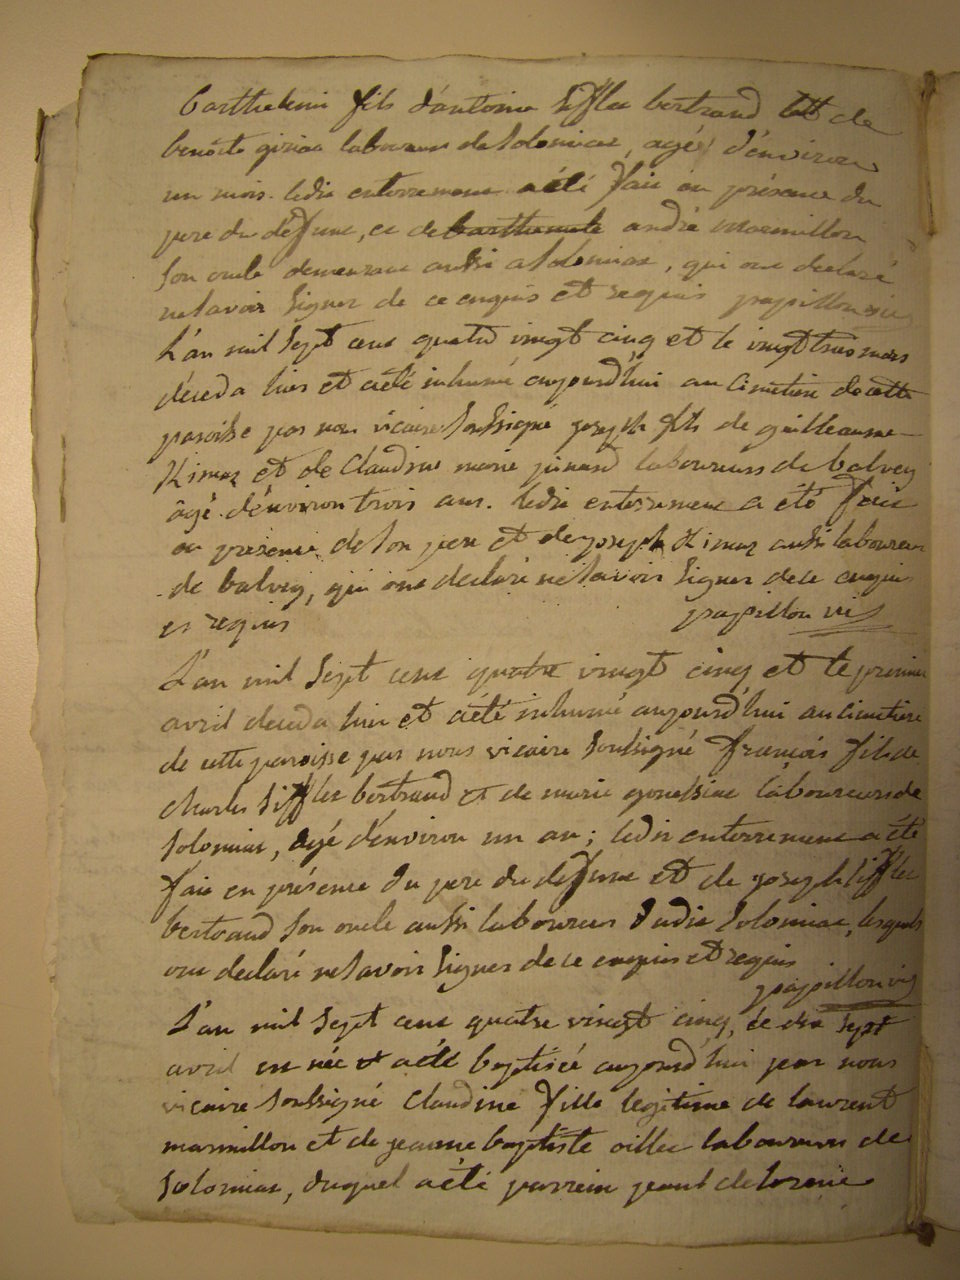 barthelemi fils d'antoine Siffler bertrand et de
benoite laboureur de Solomiac, agé d'environ
un mois. ledit enterrement a été fait en présence du
pere du défunt, et de barthemele andré marmillon
son oncle demeurant aussi a Solomiac, qui ont declaré
ne savoir signer de ce enquis et requis papillon vic
L'an mil sept cent quatre vingt cinq et le vingt trois mars
décéda hier et a été inhumé aujourd'hui au cimetiere de cette
paroisse par nous vicaire soussigné joseph fils de guilleaume
et de Claudine marie laboureurs de balvey
âgé d'environ trois ans. ledit enterrement a été fait
en presence de son pere et de joseph aussi laboureur
de balvey, qui ont declaré ne savoir signer de ce enquis
et requis papillon vic
L'an mil sept cent quatre vingt cinq et le premier
avril deceda hier et a été inhumé aujourd'hui au cimetiere
de cette paroisse par nous vicaire soussigné françois fils de
charles Siffler bertrand et de marie laboureurs de
Solomiac, agé d'environ un an ; ledit enterrement a été
fait en présence du pere du defunt et de joseph siffler
bertrand son oncle aussi laboureur dudit Solomiac, lesquels
ont declaré ne savoir signer de ce enquis et requis
papillon vic
L'an mil sept cent quatre vingt cinq, le dix sept
avril est née et a été baptisée aujourd'hui par nous
vicaire soussigné Claudine fille legitime de laurent
marmillon et de jeanne baptiste laboureurs de
Solomiac, duquel a été parrein